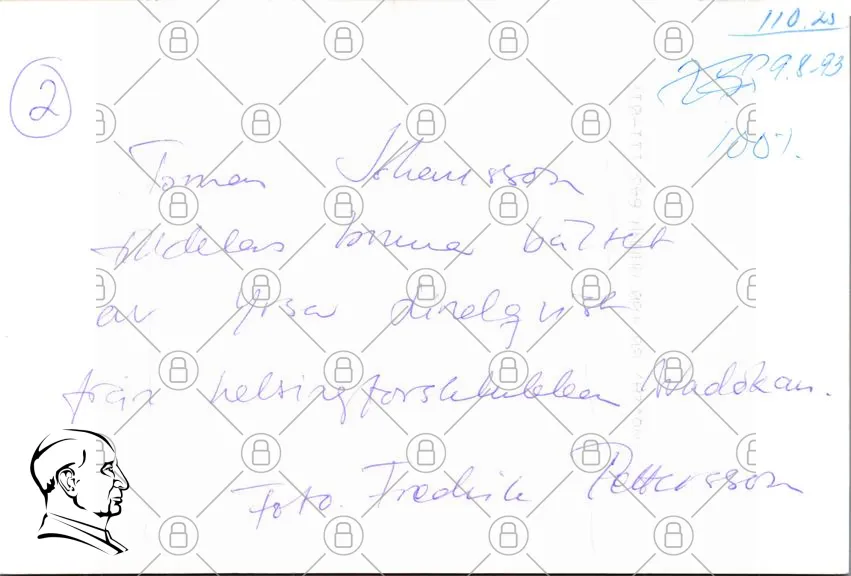 2
110.25
9.8-93
100%
Tomas Johansson
tilldelas bruna bältet
av Yrsa Lindqvist
från helsingforsklubben Wadokan.
Foto. Fredrik Pettersson